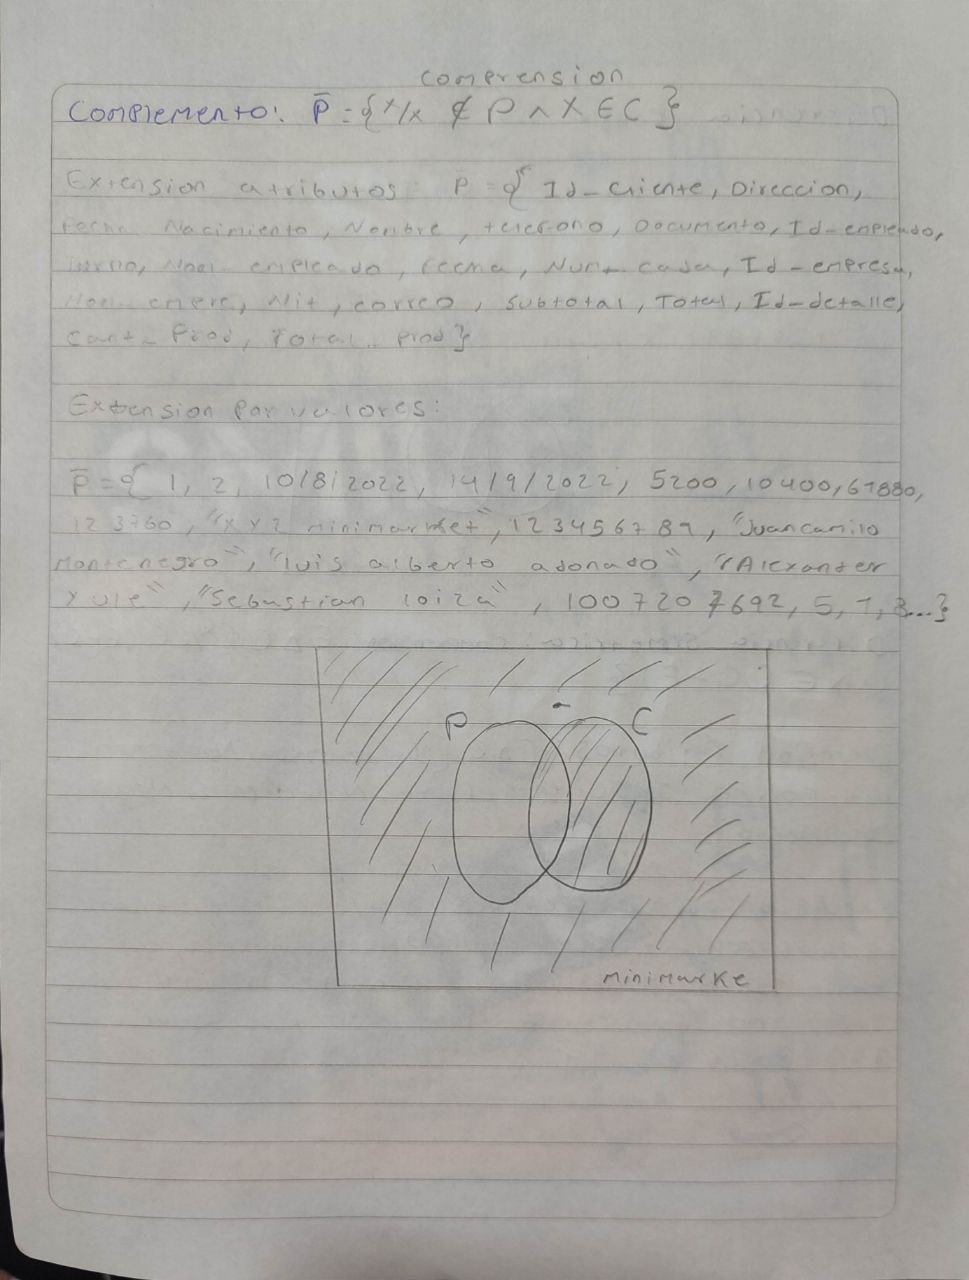 Comprension
Complemento: P̄ = {x/x ∉ P ∧ X ∈ C }
Extension atributos: P = { Id_Cliente, Direccion,
Fecha Nacimiento, Nombre, telefono, Documento, Id_empleado,
Nom empleado, fecha, Num_caja, Id_empresa,
Nom_empre, Nit, correo, Subtotal, Total, Id_detalle,
Cant_Prod, Total_Prod}
Extension por valores:
P̄ = { 1, 2, 10/8/2022, 14/9/2022, 5200, 10400, 67880,
123760, "XYZ minimarket", 123456789, "Juan camilo
Montenegro", "luis alberto adonado", "Alexander
Yule", "Sebastian loiza", 1007207692, 5, 7, 8...}
P - C
minimarke